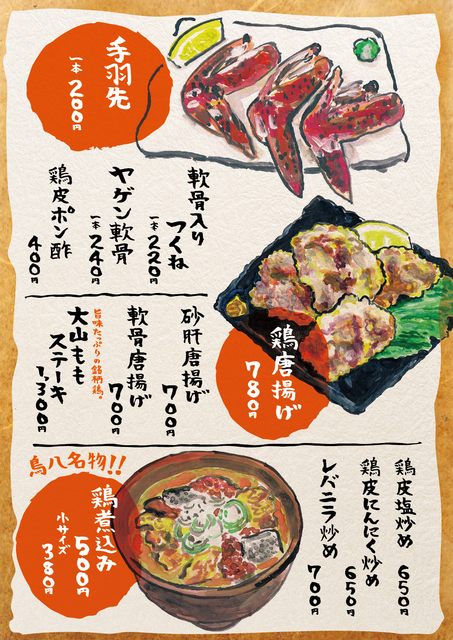 手羽先
一本 200円
軟骨入り
つくね
一本 220円
ヤゲン軟骨
一本 240円
鶏皮ポン酢
400円
鶏唐揚げ
780円
砂肝唐揚げ
700円
軟骨唐揚げ
700円
旨味たっぷりの銘柄鶏。
大山もも
ステーキ
1,300円
鶏皮塩炒め
650円
鶏皮にんにく炒め
650円
レバニラ炒め
700円
鳥八名物!!
鶏煮込み
500円
小サイズ
380円